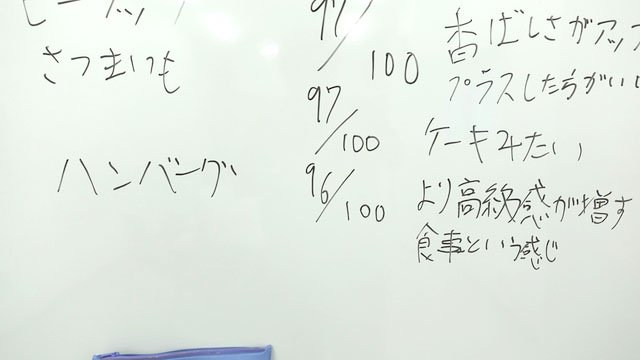 ピーナッツ 97/100 香ばしさがアップ
さつまいも プラスした方がいい
97/100 ケーキみたい
ハンバーグ 96/100 より高級感が増す
食事という感じ